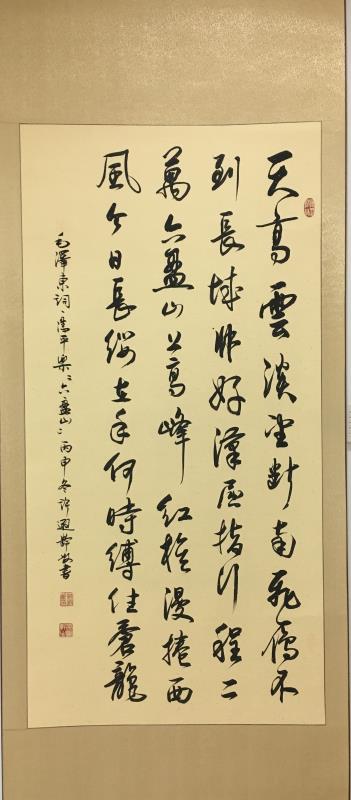 天高雲淡望斷南飛雁不
到長城非好漢屈指行程二
萬六盤山上高峰紅旗漫捲西
風今日長纓在手何時縛住蒼龍
毛澤東詞清平樂六盤山丙申冬許遐齡書